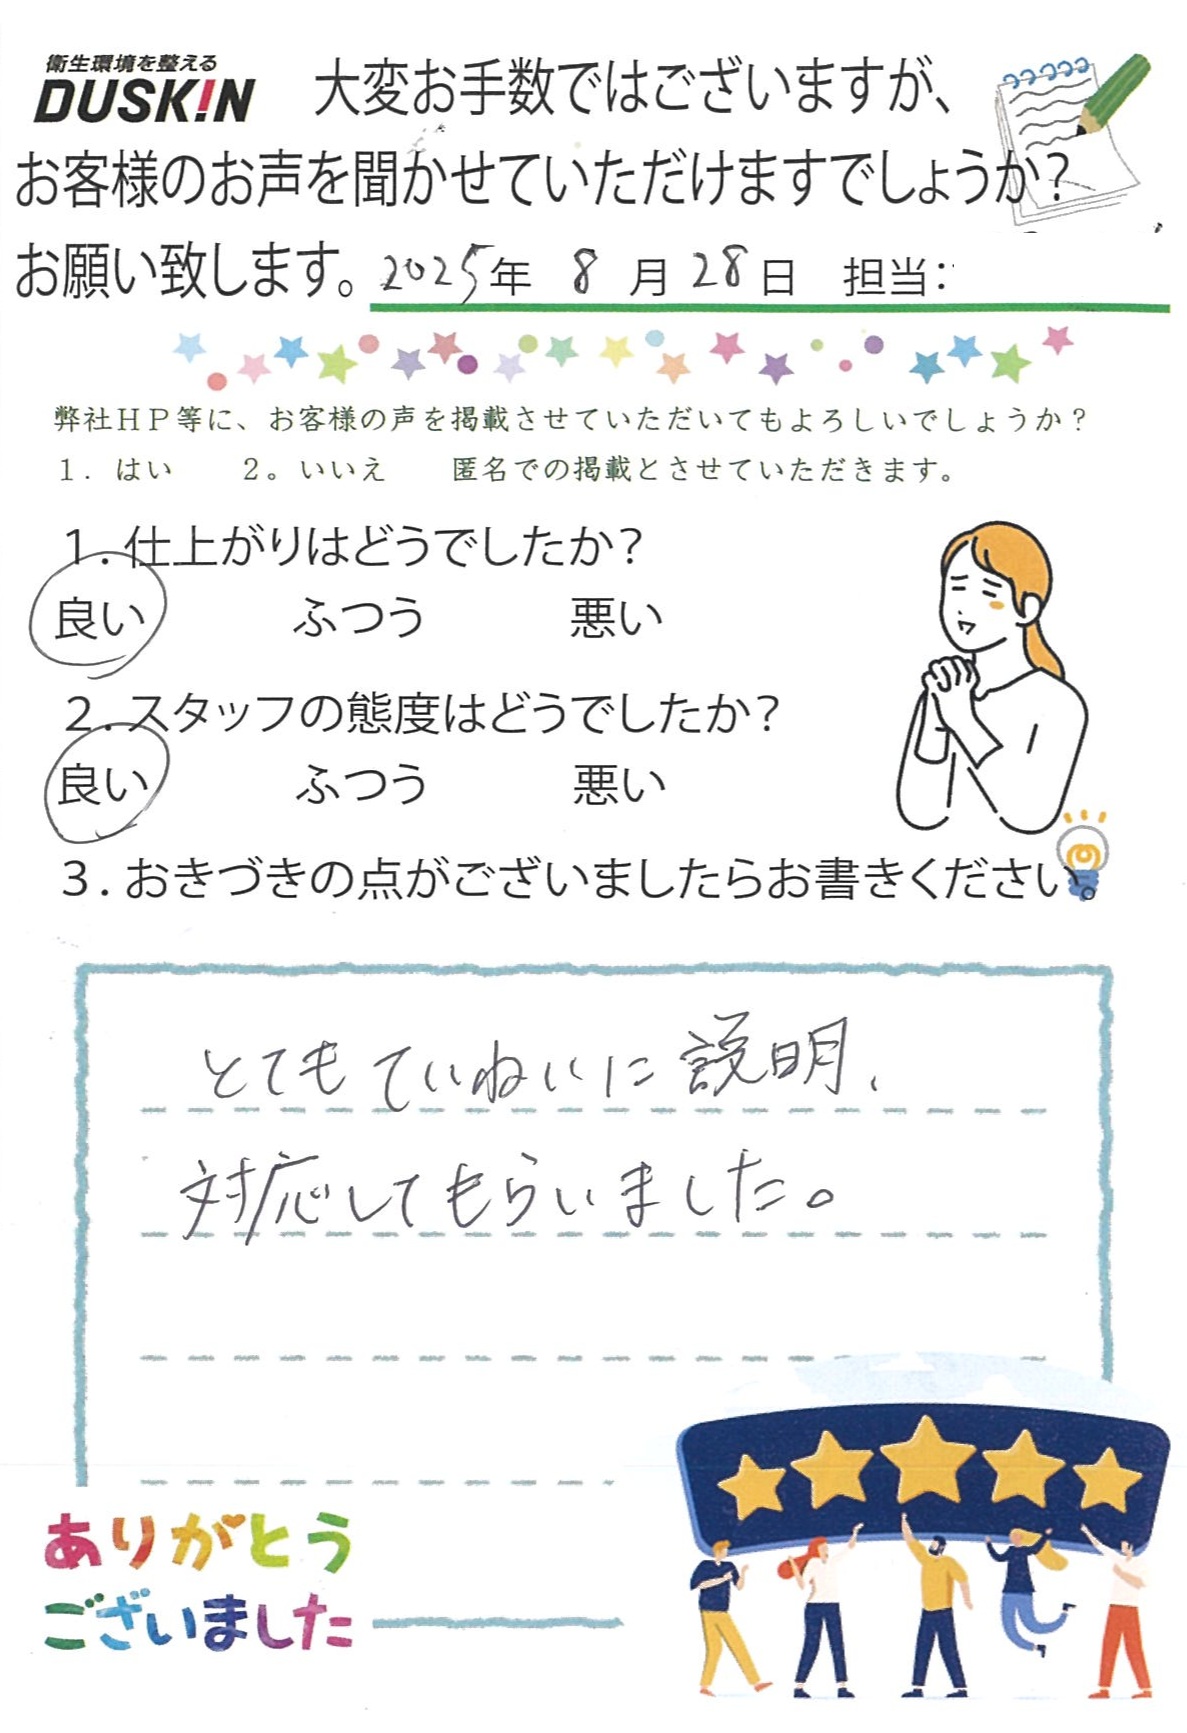 衛生環境を整える
DUSK!N
大変お手数ではございますが、
お客様のお声を聞かせていただけますでしょうか？
お願い致します。2025年 8月28日 担当：
弊社ＨＰ等に、お客様の声を掲載させていただいてもよろしいでしょうか？
１．はい ２。いいえ 匿名での掲載とさせていただきます。
１．仕上がりはどうでしたか？
良い ふつう 悪い
２．スタッフの態度はどうでしたか？
良い ふつう 悪い
３．おきづきの点がございましたらお書きください。
とてもていねいに説明、
対応してもらいました。
ありがとう
ございました